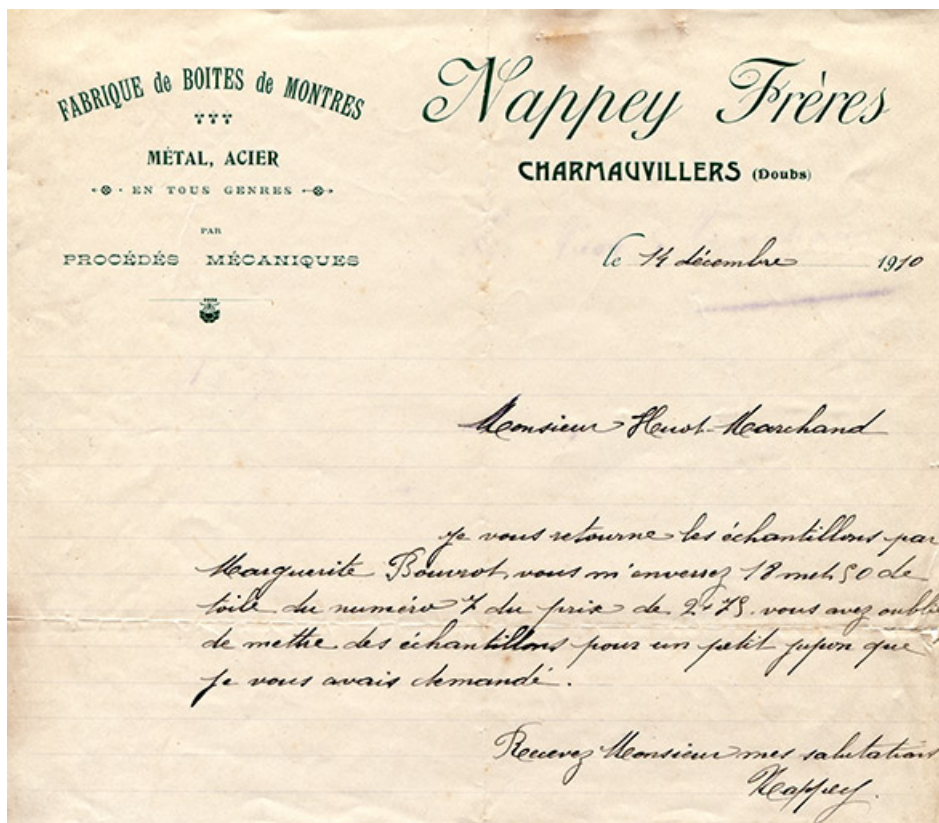 FABRIQUE de BOITES de MONTRES
MÉTAL, ACIER
EN TOUS GENRES
PAR
PROCÉDÉS MÉCANIQUES
Nappey Frères
CHARMAUVILLERS (Doubs)
le 14 décembre 1910
Monsieur Huot-Marchand
je vous retourne les échantillons par
Marguerite Bouvrot vous m'enverrez 18 met 50 de
toile du numéro 7 du prix de 2f75. vous avez oublié
de mettre des échantillons pour un petit jupon que
je vous avais demandé.
Recevez Monsieur mes salutations
Nappey.